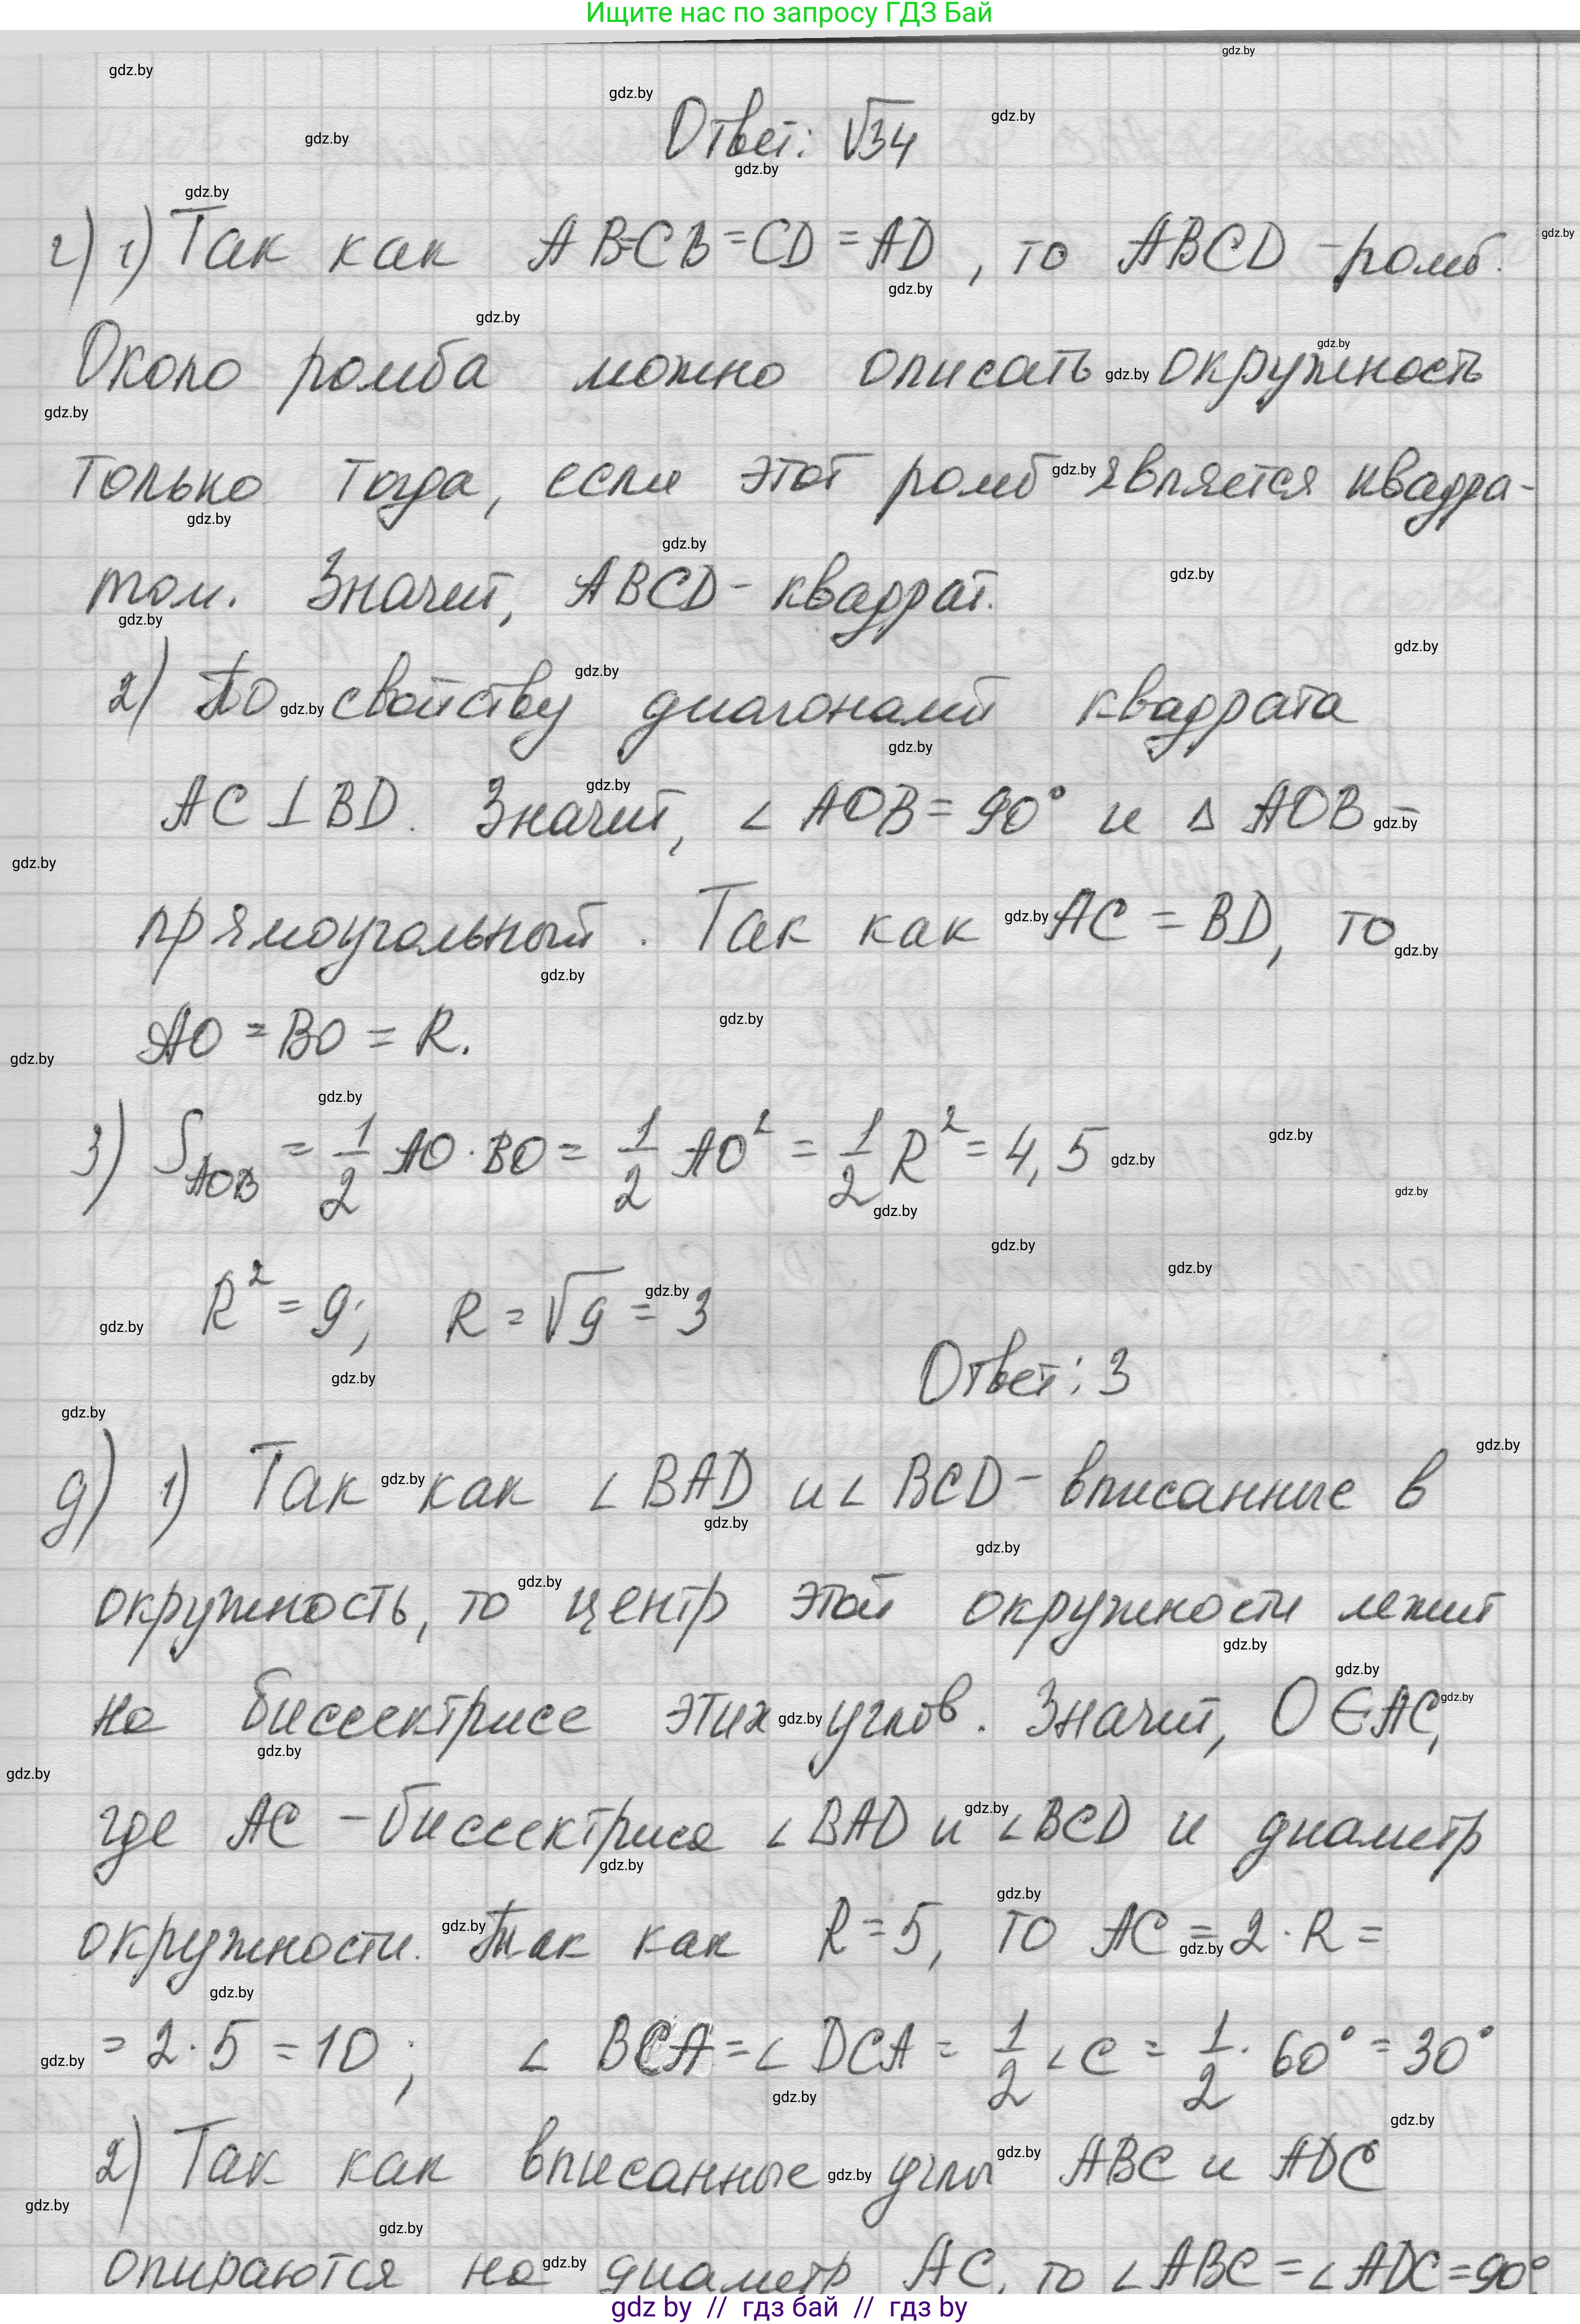 Ищите нас по запросу ГДЗ Бай
Ответ: √34
г) 1) Так как AB=CB=CD=AD, то ABCD - ромб.
Около ромба можно описать окружность
только тогда, если этот ромб является квадра-
том. Значит, ABCD - квадрат.
2) По свойству диагоналей квадрата
AC⊥BD. Значит, ∠AOB = 90° и △AOB -
прямоугольный. Так как AC = BD, то
AO = BO = R.
3) S_AOB = 1/2 AO·BO = 1/2 AO² = 1/2 R² = 4,5
R² = 9; R = √9 = 3
Ответ: 3
д) 1) Так как ∠BAD и ∠BCD - вписанные в
окружность, то центр этой окружности лежит
на биссектрисе этих углов. Значит, O ∈ AC,
где AC - биссектриса ∠BAD и ∠BCD и диаметр
окружности. Так как R = 5, то AC = 2·R =
= 2·5 = 10; ∠BCA = ∠DCA = 1/2 ∠C = 1/2 · 60° = 30°
2) Так как вписанные углы ABC и ADC
опираются на диаметр AC, то ∠ABC = ∠ADC = 90°
gdz by // гдз бай // гдз by